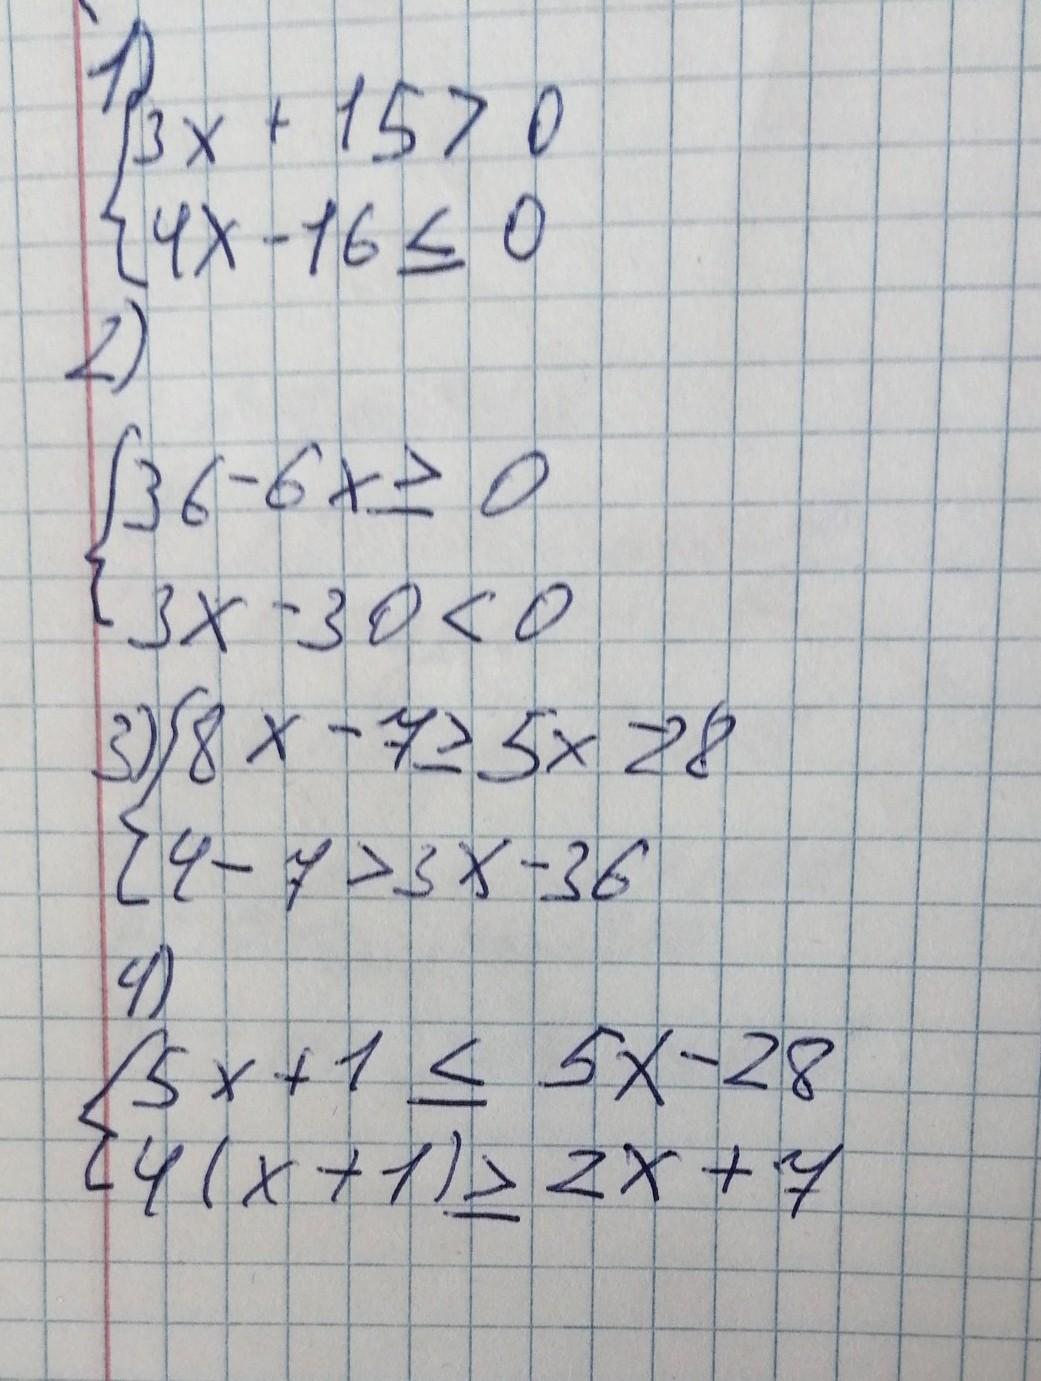 1)
{3x + 15 > 0
{4x - 16 ≤ 0
2)
{36 - 6x ≥ 0
{3x - 30 < 0
3) {8x - 7 ≥ 5x - 28
{4 - 7 > 3x - 36
4)
{5x + 1 ≤ 5x - 28
{4(x + 1) ≥ 2x + 7